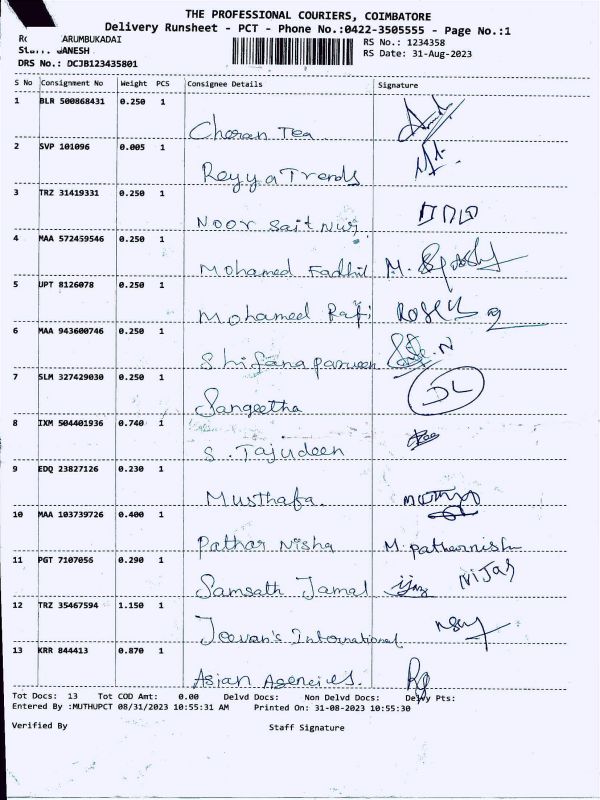 THE PROFESSIONAL COURIERS, COIMBATORE
Delivery Runsheet - PCT - Phone No.:0422-3505555 - Page No.:1
ARUMBUKADAI
RS No.: 1234358
GANESH
RS Date: 31-Aug-2023
DRS No.: DCJB123435801
S No Consignment No Weight PCS Consignee Details Signature
1 BLR 500868431 0.250 1
Choran Tea
2 SVP 101096 0.005 1
Reyya Trends
3 TRZ 31419331 0.250 1
Noor Sait Nur
4 MAA 572459546 0.250 1
Mohamed Fadhil M.
5 UPT 8126078 0.250 1
Mohamed Rafi
6 MAA 943600746 0.250 1
Shifana parveen
7 SLM 327429030 0.250 1
Sangeetha DL
8 IXM 504401936 0.740 1
S. Tajudeen
9 EDQ 23827126 0.230 1
Musthafa.
10 MAA 103739726 0.400 1
Pathar Nisha M. patharnisha
11 PGT 7107056 0.290 1
Samsath Jamal Nijas
12 TRZ 35467594 1.150 1
Jeevan's International
13 KRR 844413 0.870 1
Asian Agencies.
Tot Docs: 13 Tot COD Amt: 0.00 Delvd Docs: Non Delvd Docs: Delvy Pts:
Entered By :MUTHUPCT 08/31/2023 10:55:31 AM Printed On: 31-08-2023 10:55:30
Verified By Staff Signature